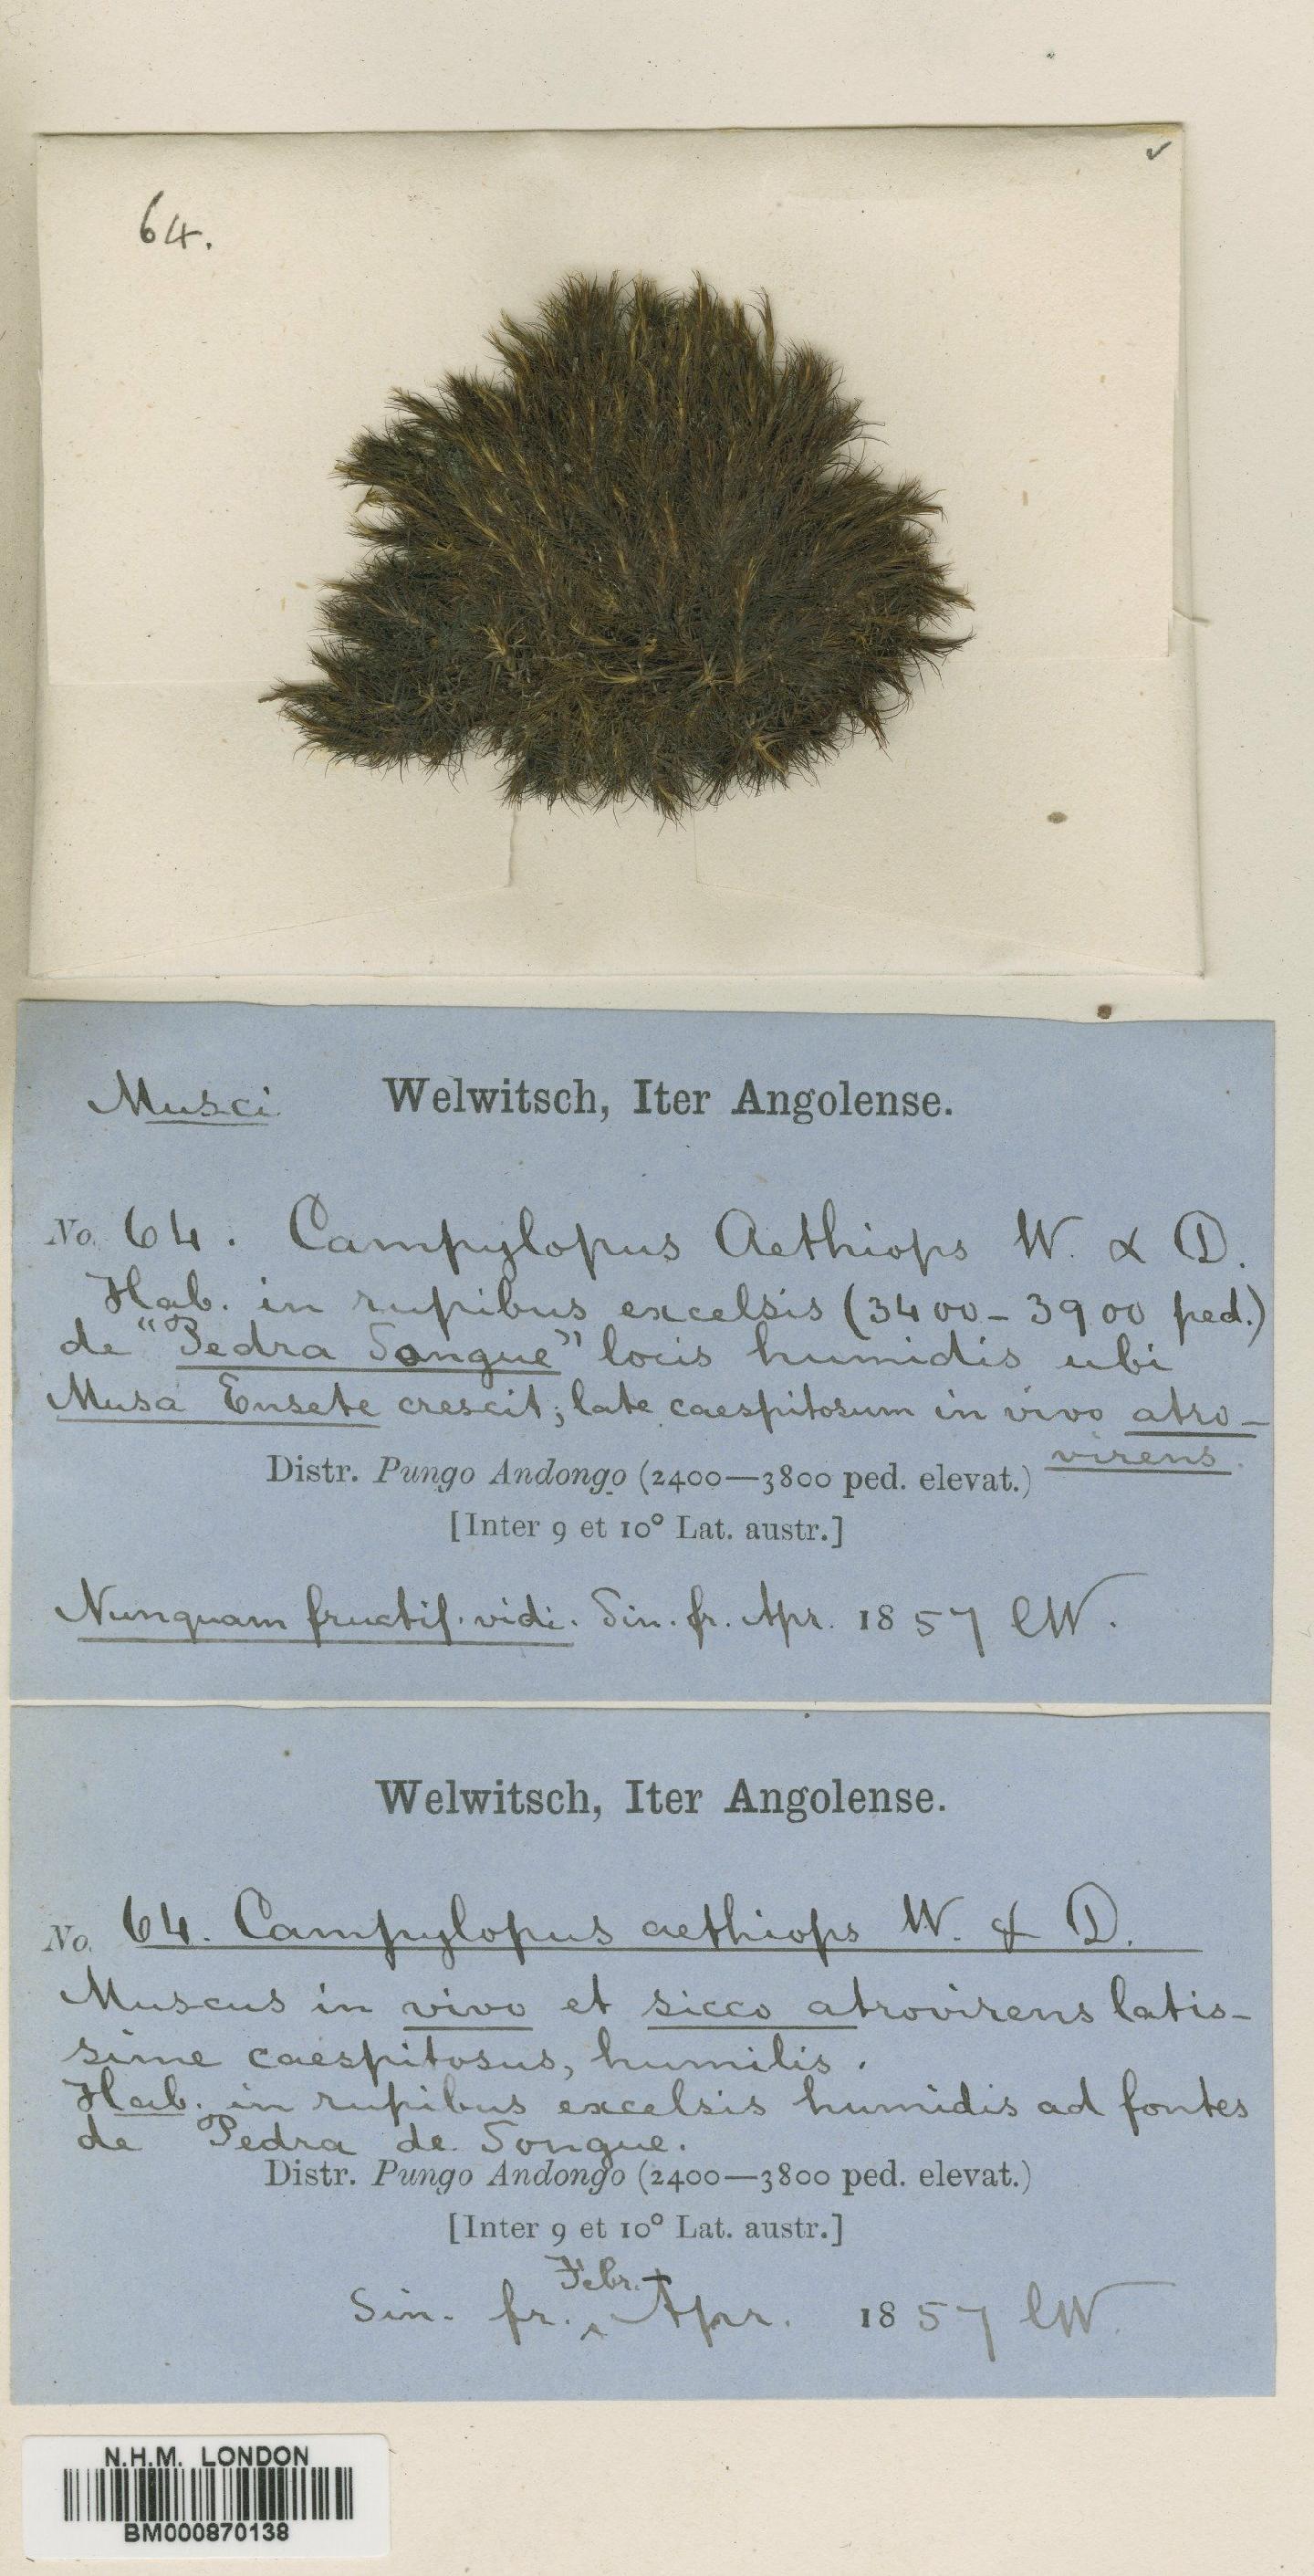 64.
Musci Welwitsch, Iter Angolense.
No. 64. Campylopus Aethiops W. & D.
Hab. in rupibus excelsis (3400-3900 ped.)
de "Pedra Songue" locis humidis ubi
Musa Ensete crescit; late caespitosum in vivo atro-
virens.
Distr. Pungo Andongo (2400—3800 ped. elevat.)
[Inter 9 et 10° Lat. austr.]
Nunquam fructif. vidi. Sin. fr. Apr. 1857
Welwitsch, Iter Angolense.
No. 64. Campylopus aethiops W. & D.
Muscus in vivo et sicco atrovirens latis-
sime caespitosus, humilis.
Hab. in rupibus excelsis humidis ad fontes
de Pedra de Songue.
Distr. Pungo Andongo (2400—3800 ped. elevat.)
[Inter 9 et 10° Lat. austr.]
Febr. +
Sin. fr. ^ Apr. 1857
N.H.M. LONDON
BM000870138